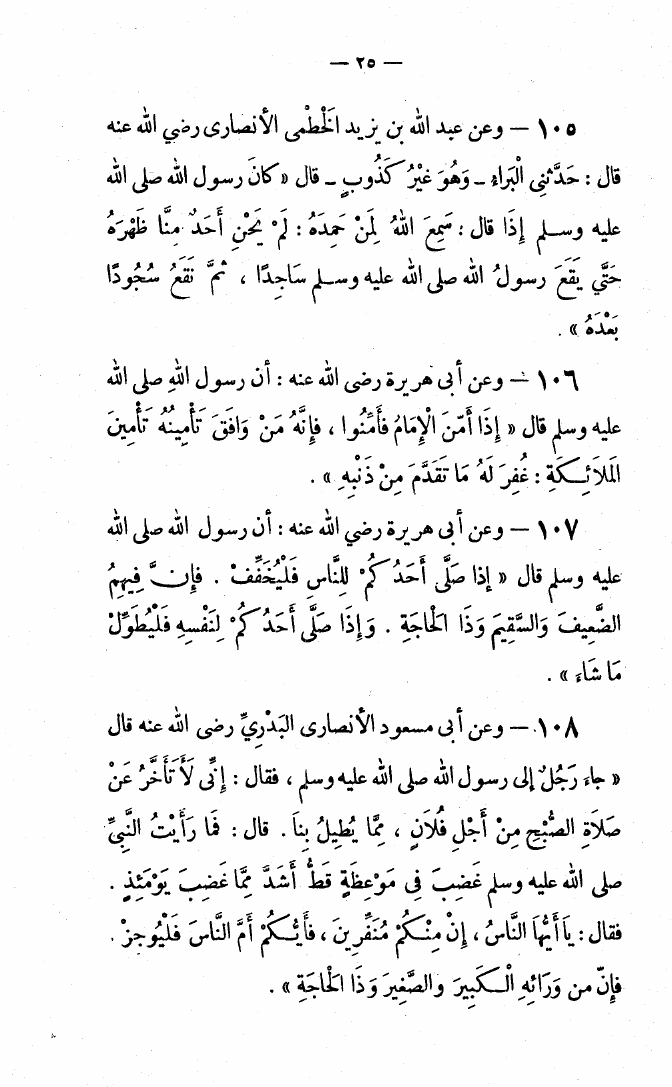 — ٢٥ —
١٠٥ — وعن عبد الله بن يزيد الخَطْمى الأنصارى رضي الله عنه
قال : حَدَّثنِى الْبَرَاء ـ وَهُوَ غَيْرُ كَذُوبٍ ـ قال « كانَ رسول الله صلى الله
عليه وسلم إِذَا قال : سَمِعَ اللهُ لِمَنْ حَمِدَهُ : لَمْ يَحْنِ أَحَدٌ مِنَّا ظَهْرَهُ
حَتَّي يَقَعَ رسولُ الله صلى الله عليه وسلم سَاجِدًا ، ثُمَّ نَقَعُ سُجُودًا
بَعْدَهُ » .
١٠٦ — وعن أبى هريرة رضى الله عنه : أن رسول اللهِ صلى الله
عليه وسلم قال « إِذَا أَمَّنَ الْإِمَامُ فَأَمِّنُوا ، فإِنَّهُ مَنْ وَافَقَ تَأْمِينُهُ تَأْمِينَ
المَلاَئِكَةِ : غُفِرَ لَهُ مَا تَقَدَّمَ مِنْ ذَنْبِهِ » .
١٠٧ — وعن أبى هريرة رضى الله عنه : أن رسول الله صلى الله
عليه وسلم قال « إذا صَلَّى أَحَدُكُمْ لِلنَّاسِ فَلْيُخَفِّفْ . فإِنَّ فِيهِمُ
الضَّعِيفَ وَالسَّقِيمَ وَذَا الحَاجَةِ . وَإِذَا صَلَّى أَحَدُكُمْ لِنَفْسِهِ فَلْيُطَوِّلْ
مَا شَاءَ » .
١٠٨ — وعن أبى مسعود الأنصارى البَدْرِيِّ رضى الله عنه قال
« جاءَ رَجُلٌ إلى رسول الله صلى الله عليه وسلم ، فقال : إِنِّى لَأَتَأَخَّرُ عَنْ
صَلاَةِ الصُّبْحِ مِنْ أَجْلِ فُلاَنٍ ، مِمَّا يُطِيلُ بِنَا . قال : فَمَا رَأَيْتُ النَّبِيَّ
صلى الله عليه وسلم غَضِبَ فى مَوْعِظَةٍ قَطُّ أَشَدَّ مِمَّا غَضِبَ يَوْمَئِذٍ .
فقال : يَاأَيُّهَا النَّاسُ ، إِنَّ مِنْكُمْ مُنَفِّرِينَ ، فَأَيُّكُمْ أَمَّ النَّاسَ فَلْيُوجِزْ .
فإِنّ من وَرَائِهِ الْكَبِيرَ والصَّغِيرَ وَذَا الحَاجَةِ » .